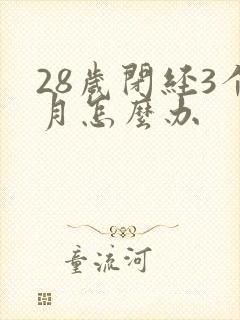 28歲閉經3个
月怎麼办
童流河